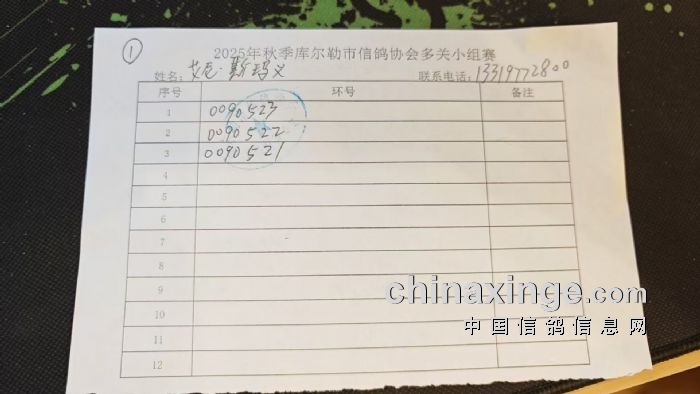 ①
2025年秋季库尔勒市信鸽协会多关小组赛
姓名：艾克·斯玛义 联系电话：13319772800
序号 环号 备注
1 0090523
2 0090522
3 0090521
4
5
6
7
8
9
10
11
12
chinaxinge.com
中国信鸽信息网